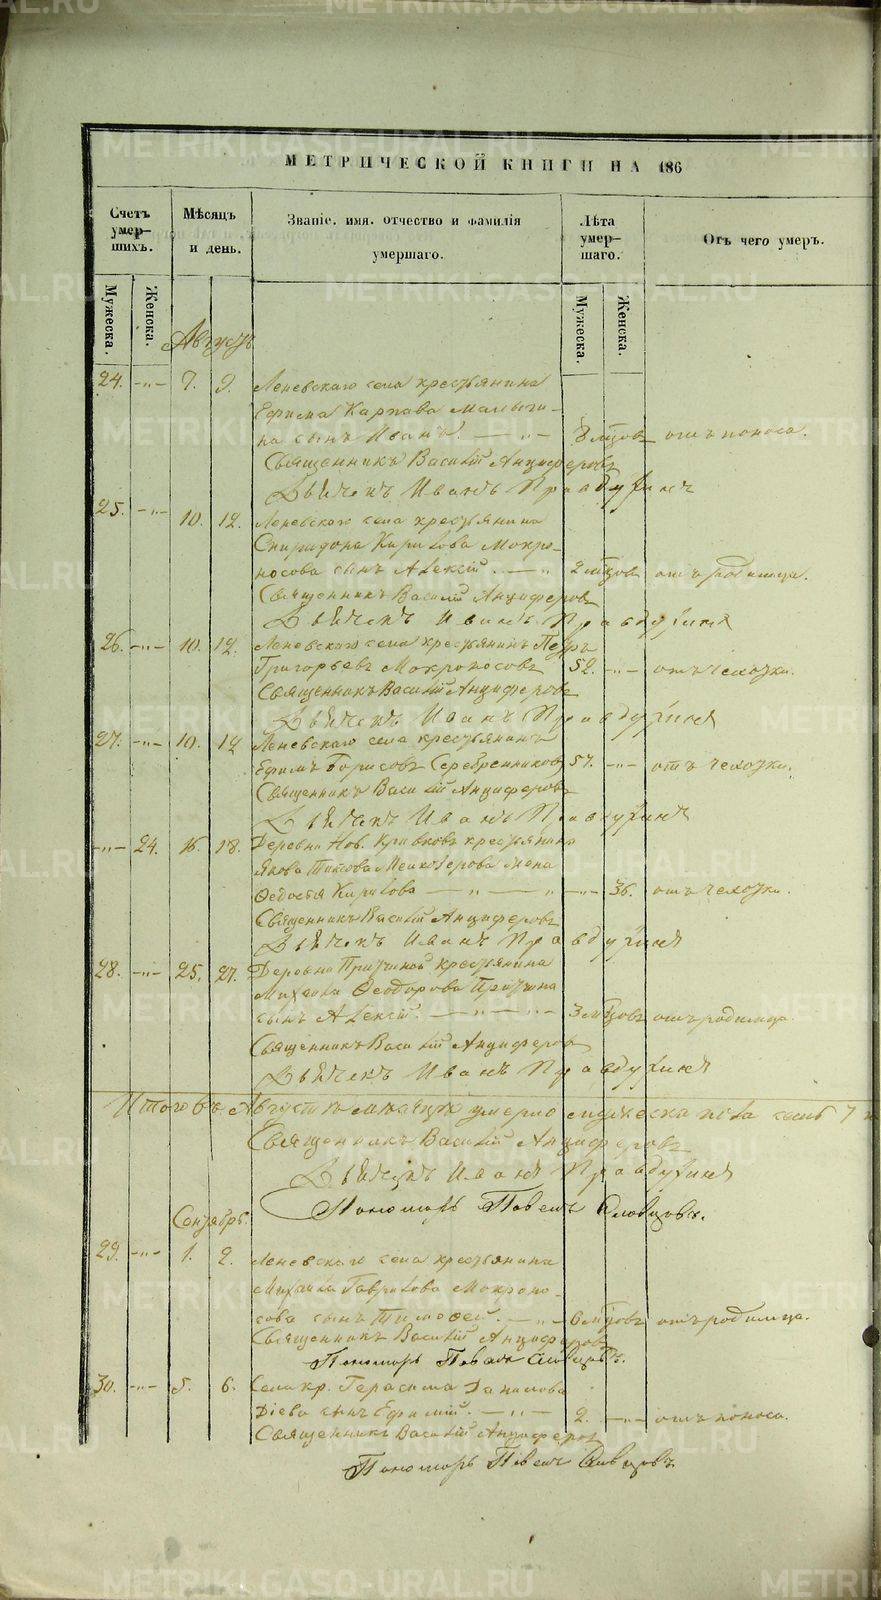 МЕТРИЧЕСКОЙ КНИГИ НА 186
Счетъ умер-шихъ.
Мѣсяцъ и день.
Званіе, имя, отчество и фамилія умершаго.
Лѣта умер-шаго.
Отъ чего умеръ.
Мужеска. Женска.
Мужеска. Женска.
Августъ
24. -"- 7. 9. Леневскаго села крестьянина
Ефима Карпова Малыги-
на сынъ Иванъ. -"- мцовъ отъ поноса.
Священникъ Василій Анциферовъ
Дьячекъ Иванъ Правдухинъ
25. -"- 10. 12. Леневскаго села крестьянина
Спиридона Кирилова Мокро-
носова сынъ Алексій. -"- 2 мцовъ отъ родимца.
Священникъ Василій Анциферовъ
Дьячекъ Иванъ Правдухинъ
26. -"- 10. 12. Леневскаго села крестьянинъ Петръ
Григорьевъ Мокроносовъ 52. -"- отъ чехотки.
Священникъ Василій Анциферовъ
Дьячекъ Иванъ Правдухинъ
27. -"- 10. 12 Леневскаго села крестьянинъ
Ефимъ Борисовъ Серебренниковъ 57. -"- отъ чехотки.
Священникъ Василій Анциферовъ
Дьячекъ Иванъ Правдухинъ
-"- 24. 16. 18. Деревни Нов. Кривковъ крестьянина
Якова Титова жена
Ѳедосья Кирилова -"- -"- 36. отъ чехотки.
Священникъ Василій Анциферовъ
Дьячекъ Иванъ Правдухинъ
28. -"- 25. 27. Деревни крестьянина
Михаила Ѳеодорова
сынъ Алексій. -"- -"- 3 мцовъ отъ родимца.
Священникъ Василій Анциферовъ
Дьячекъ Иванъ Правдухинъ
Итого въ Августѣ мѣсяцѣ умерло мужеска пола семь 7
Священникъ Василій Анциферовъ
Дьячекъ Иванъ Правдухинъ
Пономарь Павелъ Словцовъ.
Сентябрь.
29. -"- 1. 2. Леневскаго села крестьянина
Михаила Гаврилова Мокроно-
сова сынъ Тимофей. -"- 6 мцовъ отъ родимца.
Священникъ Василій Анциферовъ
Пономарь Павелъ Словцовъ.
30. -"- 5. 6. Села кр. Герасима Данилова
Діева сынъ Ефимій. -"- 2. -"- отъ поноса.
Священникъ Василій Анциферовъ
Пономарь Павелъ Словцовъ
METRIKI.GASO-URAL.RU